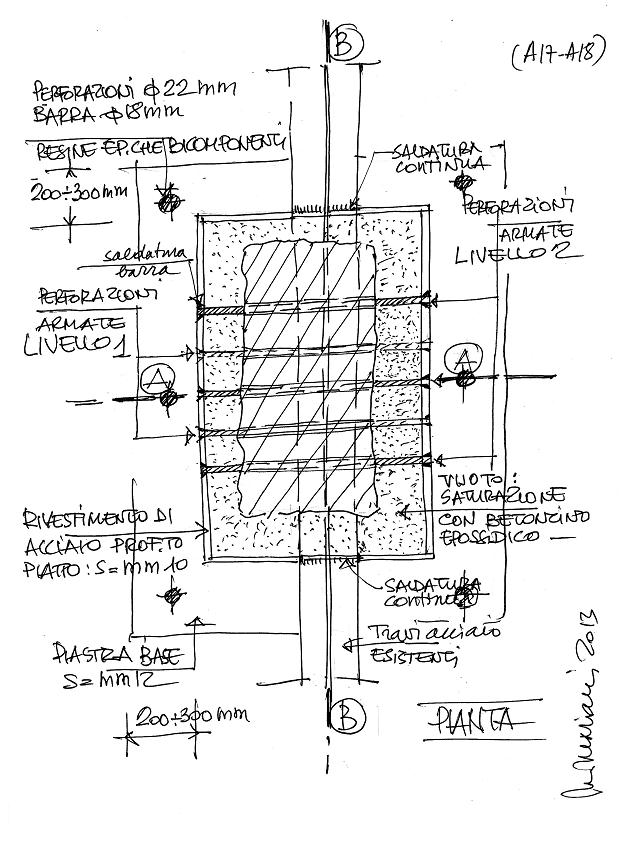 B
(A17-A18)
PERFORAZIONI ϕ22mm
BARRA ϕ18mm
RESINE EP.CHE BICOMPONENTI
200÷300mm
SALDATURA
CONTINUA
PERFORAZIONI
ARMATE
LIVELLO 2
saldatura
barra
PERFORAZIONI
ARMATE
LIVELLO 1
A
A
VUOTO:
SATURAZIONE
CON BETONCINO
EPOSSIDICO
RIVESTIMENTO DI
ACCIAIO PROF.TO
PIATTO: S=mm 10
SALDATURA
CONTINUA
PIASTRA BASE
S=mm12
TRAVI ACCIAIO
ESISTENTI
200÷300mm
B
PIANTA
2013